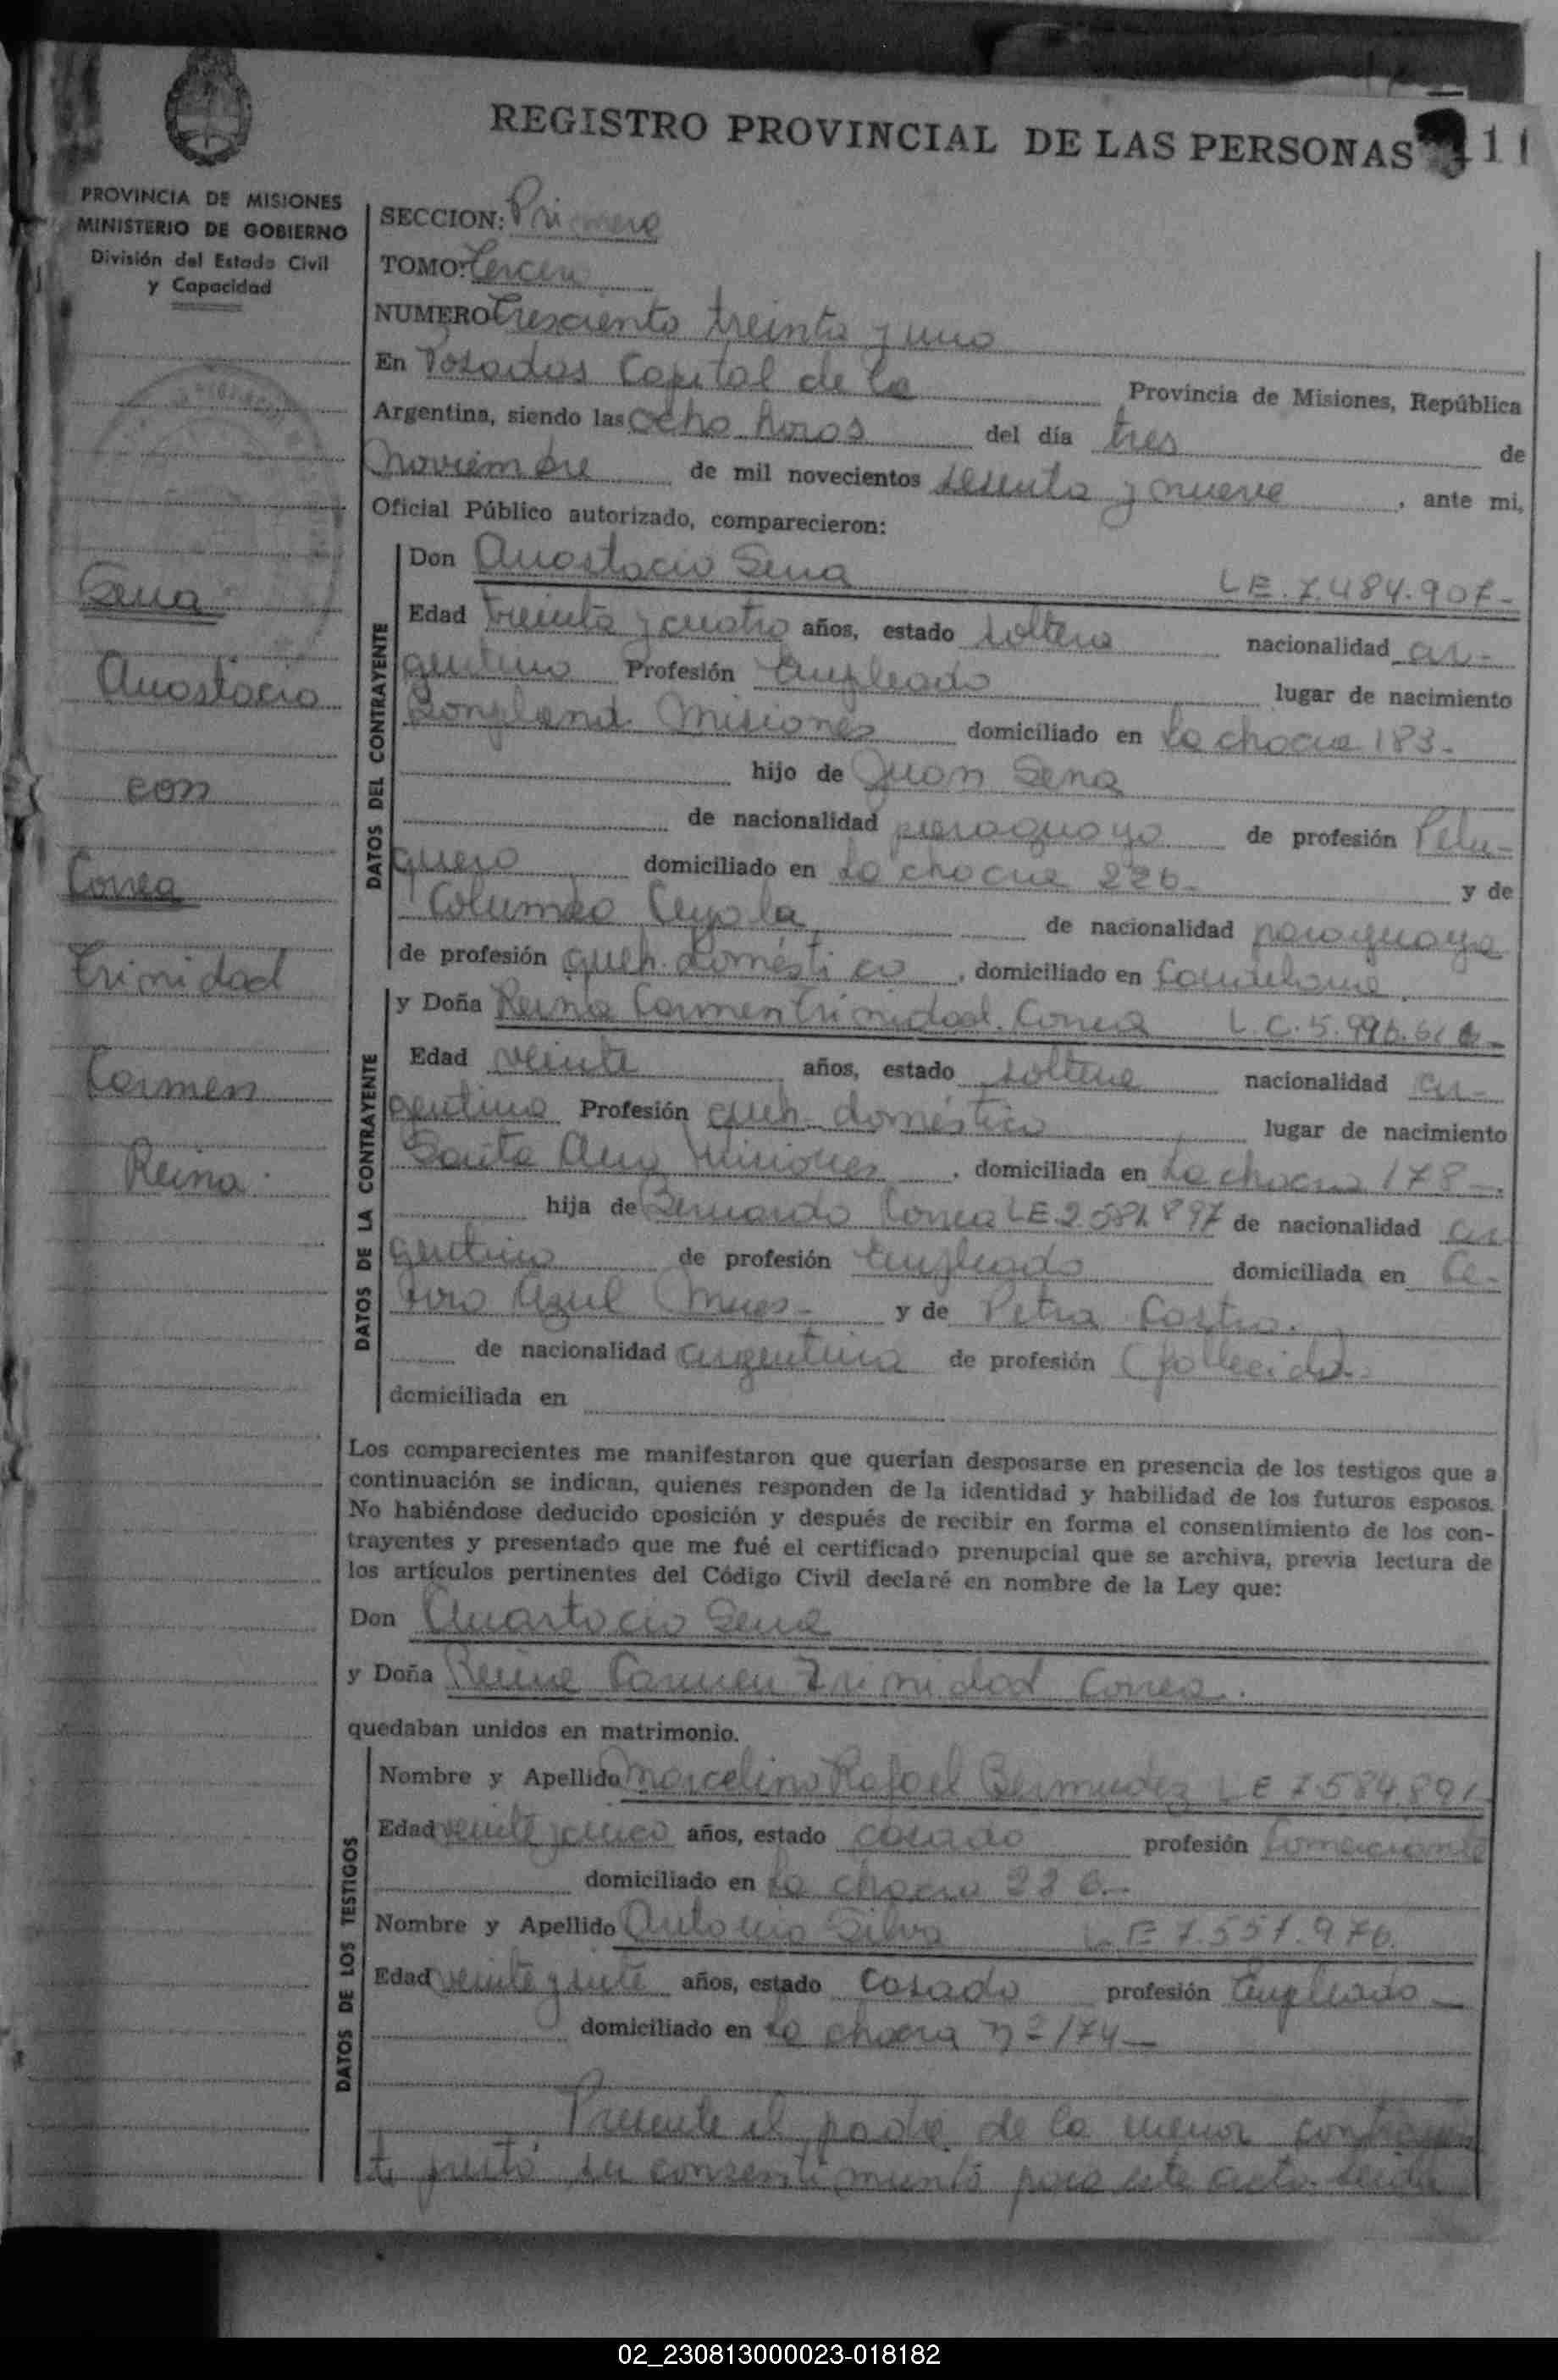 REGISTRO PROVINCIAL DE LAS PERSONAS 11
PROVINCIA DE MISIONES
MINISTERIO DE GOBIERNO
División del Estado Civil
y Capacidad
Sena
Anastacio
con
Correa
Trinidad
Carmen
Reina
SECCION: Primera
TOMO: Tercero
NUMERO Tresciento treinta y uno
En Posadas Capital de la Provincia de Misiones, República
Argentina, siendo las ocho horas del día tres de
Noviembre de mil novecientos sesenta y nueve, ante mi,
Oficial Público autorizado, comparecieron:
DATOS DEL CONTRAYENTE
Don Anastacio Sena L E. 7.484.907-
Edad treinta y cuatro años, estado soltero nacionalidad ar-
gentino Profesión Empleado lugar de nacimiento
Bonpland Misiones domiciliado en La chacra 183.-
hijo de Juan Sena
de nacionalidad paraguayo de profesión Pelu-
quero domiciliado en La chacra 226- y de
de nacionalidad paraguaya
de profesión queh. doméstico, domiciliado en Candelaria
DATOS DE LA CONTRAYENTE
y Doña Reina Carmen Trinidad Correa L.C. 5.996.61
Edad veinte años, estado soltera nacionalidad ar-
gentina Profesión queh. doméstico lugar de nacimiento
Santa Ana Misiones, domiciliada en La chacra 178-
hija de Bernardo Correa L E 2.581.897 de nacionalidad ar
gentino de profesión Empleado domiciliada en Ce-
rro Azul Mnes- y de Petra Castro.
de nacionalidad argentina de profesión (fallecida)
domiciliada en
Los comparecientes me manifestaron que querían desposarse en presencia de los testigos que a
continuación se indican, quienes responden de la identidad y habilidad de los futuros esposos.
No habiéndose deducido oposición y después de recibir en forma el consentimiento de los con-
trayentes y presentado que me fué el certificado prenupcial que se archiva, previa lectura de
los artículos pertinentes del Código Civil declaré en nombre de la Ley que:
Don Anastacio Sena
y Doña Reina Carmen Trinidad Correa.
quedaban unidos en matrimonio.
DATOS DE LOS TESTIGOS
Nombre y Apellido Marcelino Rafael Bermudez L E 7.584.891
Edad veinte y cinco años, estado casado profesión Comerciante
domiciliado en La chacra 226.-
Nombre y Apellido Antonio Silva L E 7.551.976.
Edad veinte y siete años, estado casado profesión Empleado-
domiciliado en La chacra nº 174-
Presente el padre de la menor contrayen
te prestó su consentimiento para este acto. Leida
02_230813000023-018182